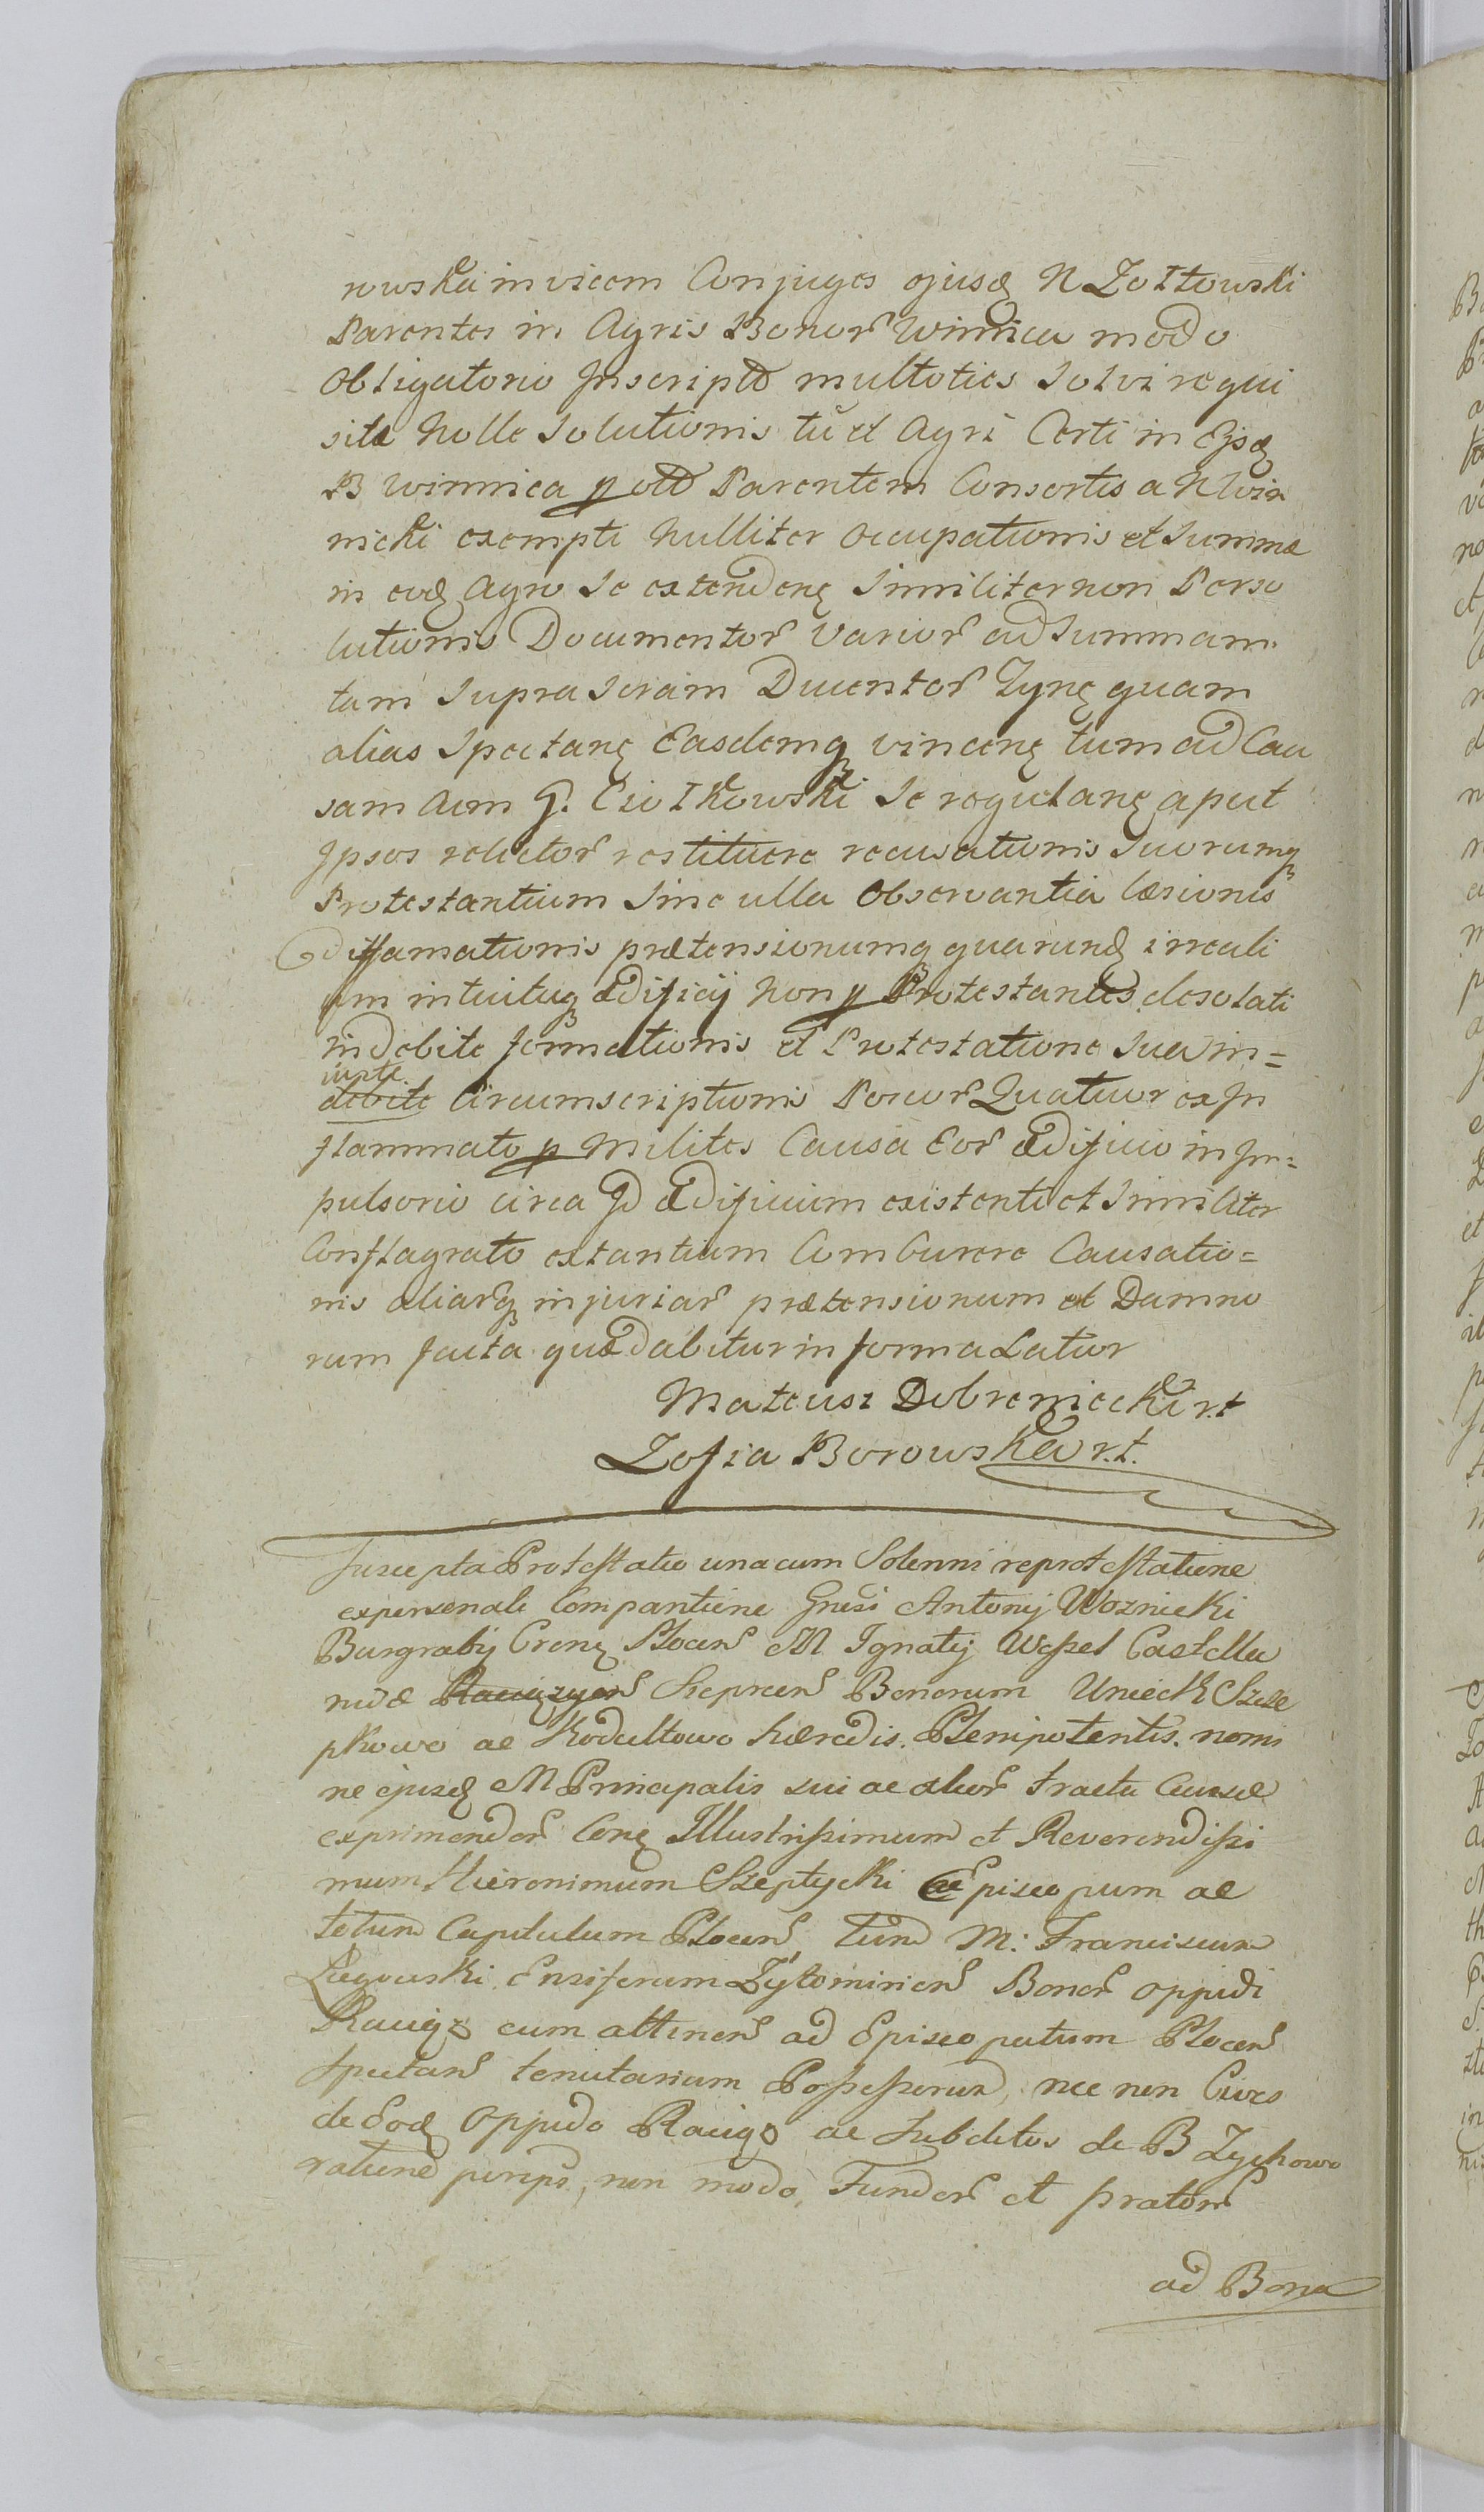 nowska invicem Conjuges ejusq N Zołtowski
Parentes in Agris Bonor Winnica modo
Obligatorio Inscripto multoties Solvi requi
sitæ Nolle Solutionis tũ et Agri Certi in Ejsq
B Winnica p olȏ Parentem Consortis a N Win
nicki exempti Nulliter Occupationis et Summæ
in eoq Agro Se extendenq Similiter non Perso
lutionis Documentor varior ad Summam
tam Supra Scram Ducentor Tynq quam
alias Spectanq Easdemq vincenq tum ad Cau
sam cum G. Ciołkowski Se regulanq aput
Ipsos relictor restituere recusationis Suorumq
Protestantium Sine ulla Observantia læsionis
diffamationis prætensionumq quarunq irreali
um intuituq ædificij Non p Protestantes desolati
indebite formationis et Protestatione Sua in=
juste
debite Circumscriptionis Porcor Quatuor ex In
flammato p Milites Causa Eor ædificio in Im=
pulsorio circa Id Ædificium existenti et Similiter
Conflagrato extantium Comburere Causatio=
nis aliarq injuriar prætensionum et Damno
rum facta quæ dabitur in forma Latior
Mateusz Dobremiecki r.t
Zofia Borowska r.t.
Suscepta Protestatio una cum Solenni reprotestatione
ex personali Compantione Gnesi Antonij Woznicki
Burgrabij Crenq Plocens M Ignatij Wessel Castella
nidæ Raciązgens Sieprcens Bonorum Unieck Szcze
pkowo ac Kodultowo hæredis. Plenipotentis. nomi
ne ejusq M Principalis sui ac alior tractu Causæ
exprimendor Conq Illustrissimum et Reverendissi
mum Hieronimum Szeptycki Episcopum ac
totum Capitulum Plocens, tum M: Franciscum
Łegowski Ensiferum Zytomiriens Bonor oppidi
Raciąz cum attinens ad Episcopatum Plocens
Spectans tenutarium Possessorem, nec non Cives
de Eoq Oppido Raciąz ac Subditos de B Zychowo
ratione, non modo, Fundor et prator
ad Bona